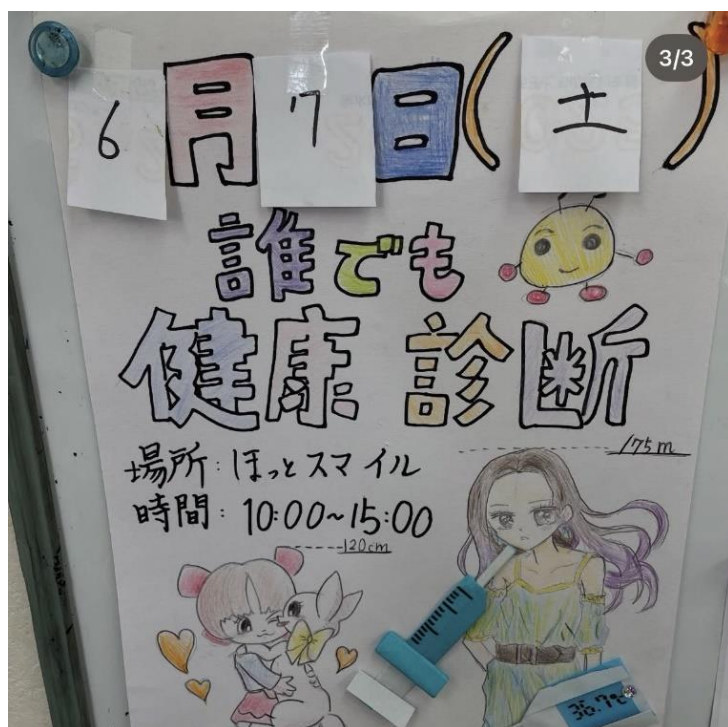 3/3
6月7日(土)
誰でも
健康診断
175m
場所:ほっとスマイル
時間:10:00~15:00
120cm
36.7℃